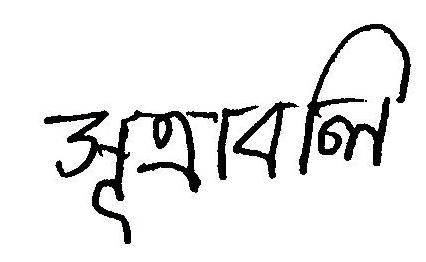 সূত্রাবলি